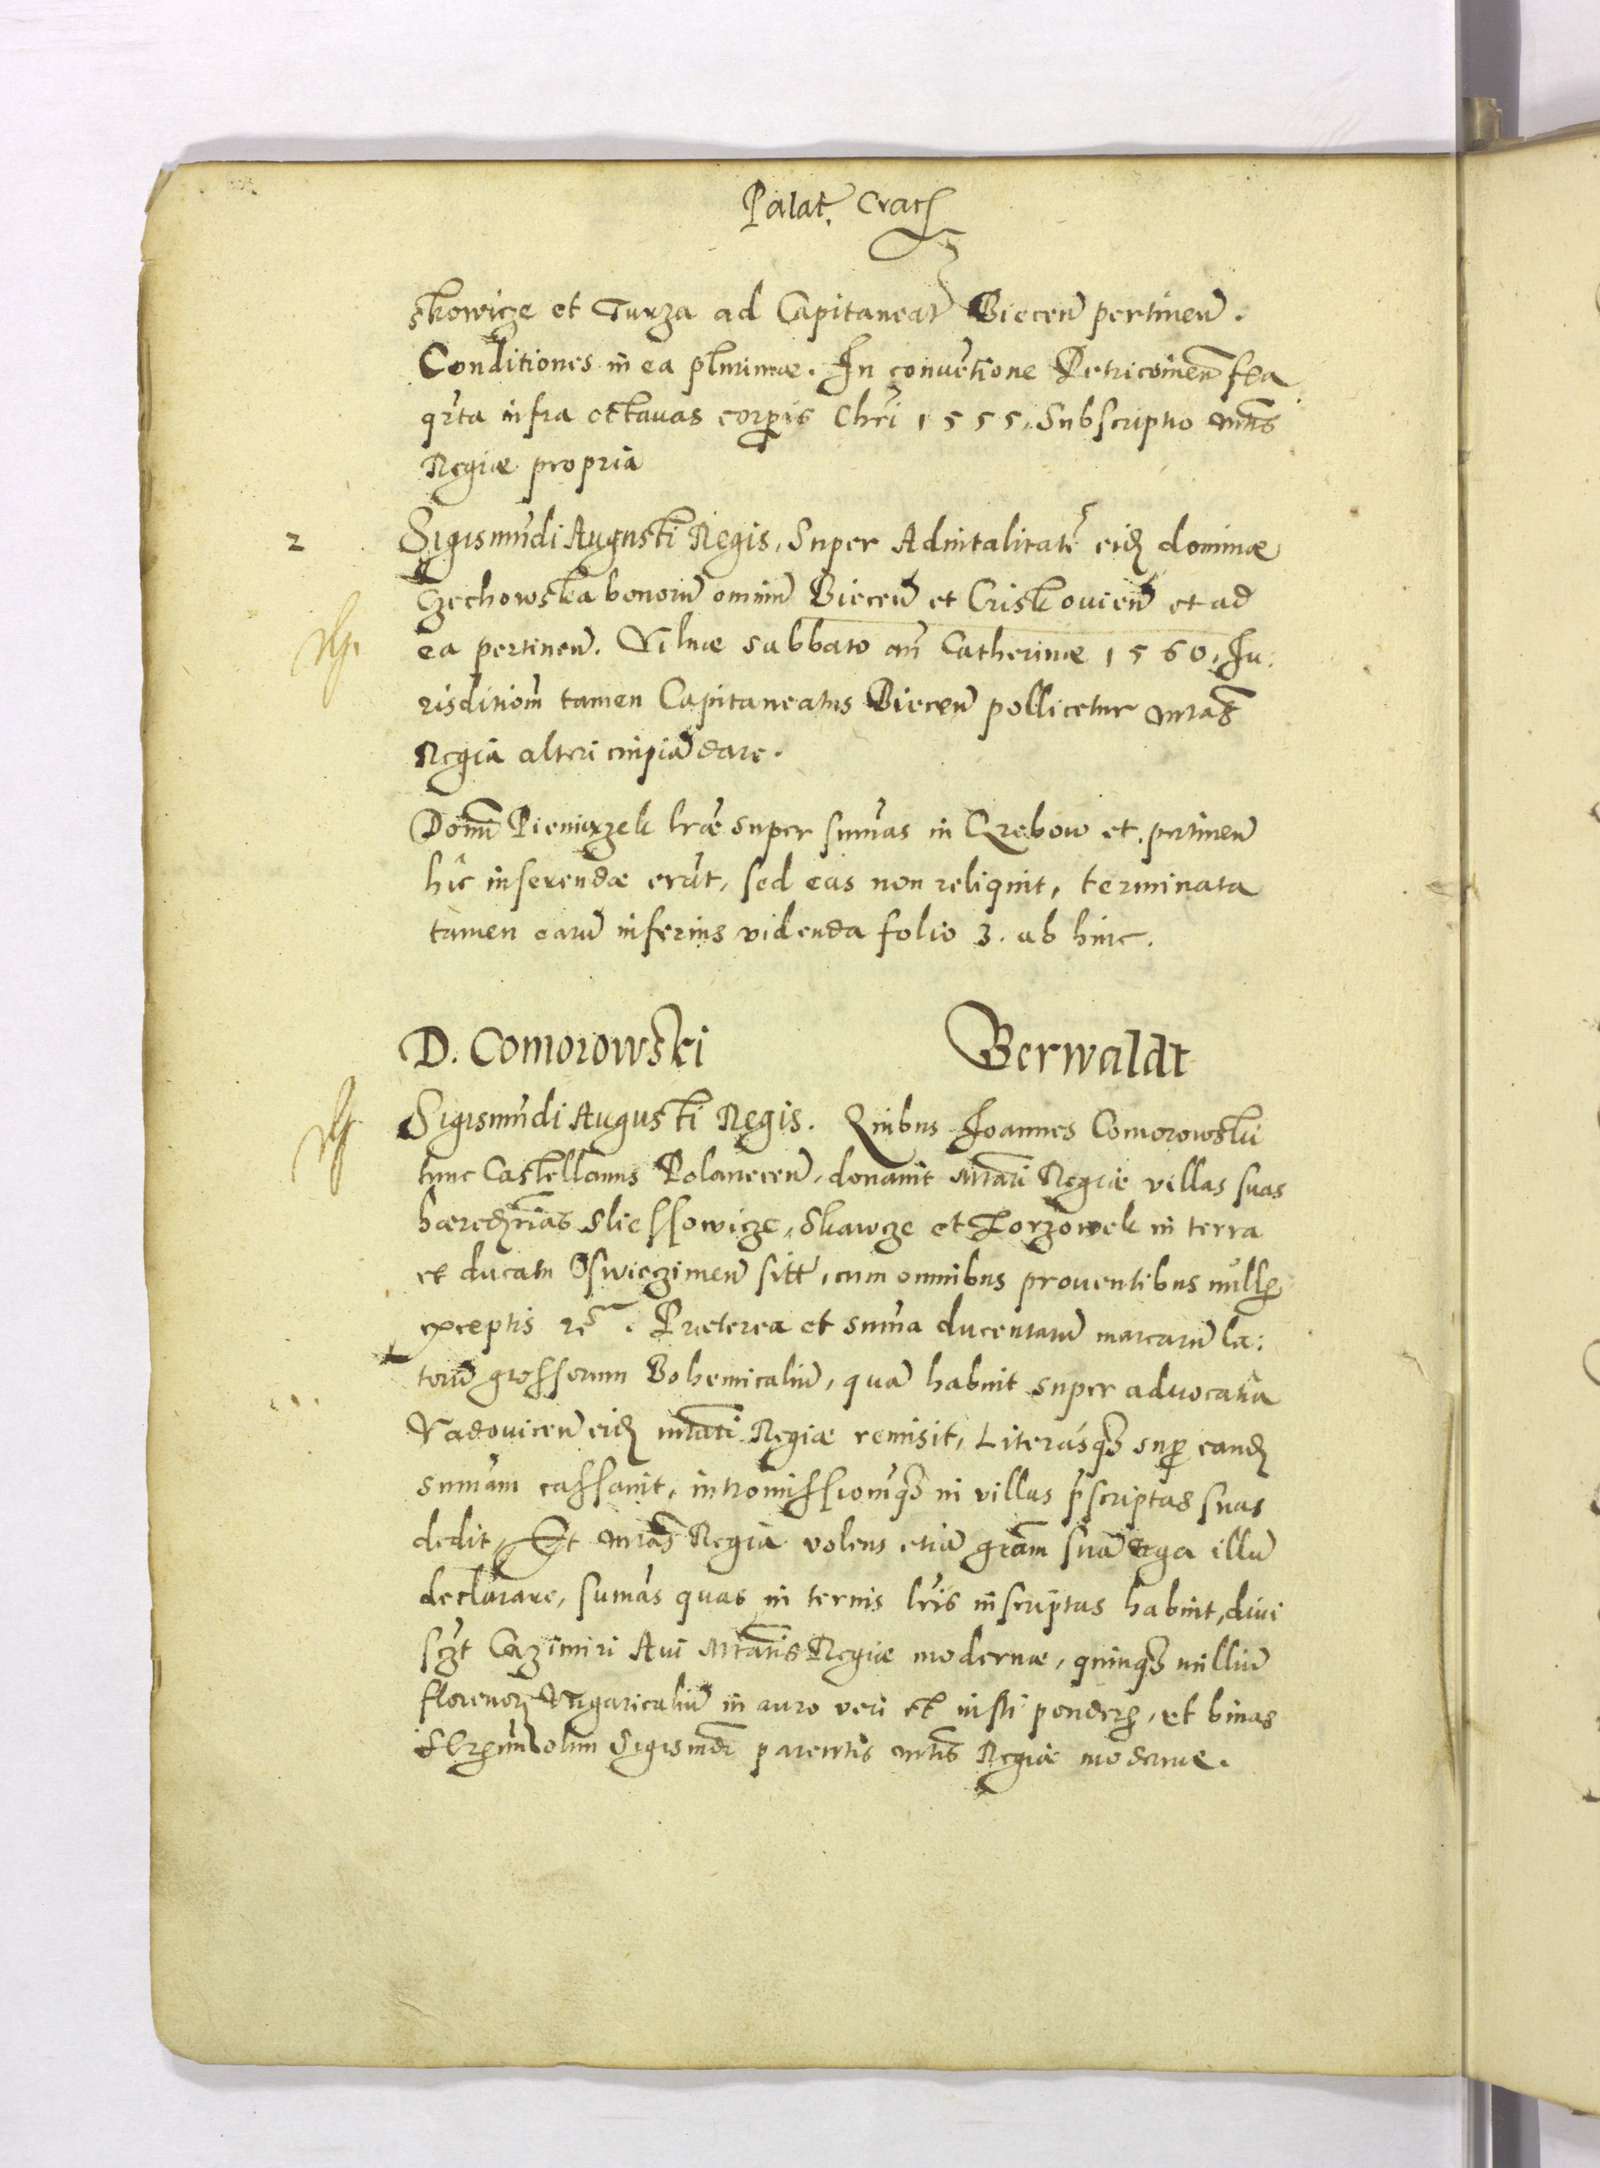 Palat. Crac
skowicze et Turza ad Capitaneat Biecen pertinen.
Conditiones in ea plurimae. In conuetione Petricouien fea
qrta infra octauas corpis Chri 1555. Subscriptio mtis
Regiae propria
2 Sigismudi Augusti Regis, Super Aduitalitate eid dominae
Czechowska bonoru omniu Biecen et Criskouien et ad
ea pertinen. Vilnae sabbato an Catherinae 1560. Ju:
risditiom tamen Capitaneatus Biecen pollicetur mtas
Regia alteri cuipia dare.
Domi Pieniazek lrae super sumas in Grebow et pertinen
hic inserendae erat, sed eas non reliquit, terminata
tamen earu inferius videnda folio 3. ab hinc.
D. Comorowski Berwaldt
Sigismudi Augusti Regis. Quibus Joannes Comorowski
tunc Castellanus Polanecen, donauit Mtati Regiae villas suas
haeredrias Sliessowicze, Skawcze et Lorzowek in terra
et ducatu Oswieczimen sitt, cum omnibus prouentibus nullis
exceptis re. Praeterea et suma ducentaru marcaru la:
toru grossorum Bohemicaliu, qua habuit super aduocatia
Vadouicen eid mtati Regiae remisit, Literasq sup eand
sumam cassauit, intromissionemq in villas pscriptas suas
dedit, Et mtas Regia volens etia gram sua erga illu
declarare, sumas quas in ternis lris inscriptas habuit, diui
sczt Cazimiri Aui Mtatis Regiae modernae, quinq milliu
florenor Vngaricaliu in auro veri et iusti ponderis, et binas
olim Sigismdi parentis mtis Regiae modernae.